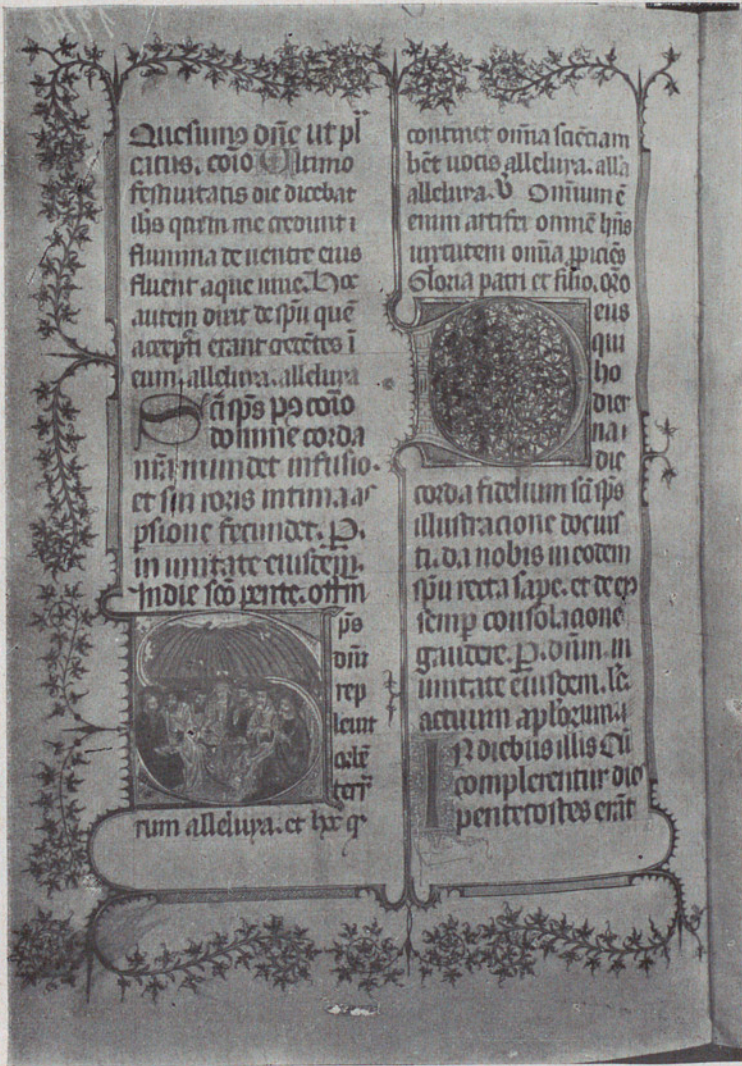 Quesumus dn̄e ut pl
citus. cōio Ultimo
festiuitatis die dicebat
ih̄s qui in me credunt i
flumina de uentre eius
fluent aque uiue. Hoc
autem dixit de sp̄u quē
accepturi erant credētes ī
eum, alleluya. alleluya
Sc̄i sp̄s p9 cōio
domine corda
nr̄a mundet infusio.
et sui roris intima as
psione fecundet. P.
in unitate eiusdem.
In die sc̄o pente. offm
Sp̄s
dn̄i
rep
leuit
orbē
terr
rum alleluya. et hoc q
continet om̄ia sciēciam
hēt uocis alleluya. alla
alleluya. V Omnium ē
enim artifex omnē hn̄s
uirtutem om̄ia ꝓspiciēs
Gloria patri et filio. or̄o
Deus
qui
ho
dier
na
die
corda fidelium sc̄i sp̄s
illustracione docuis
ti. da nobis in eodem
sp̄u recta sape. et de eiꝰ
semp consolacione
gaudere. P. dn̄m. in
unitate eiusdem. lc̄.
actuum apl̄orum.
In diebus illis Cū
complerentur dies
pentecostes erāt